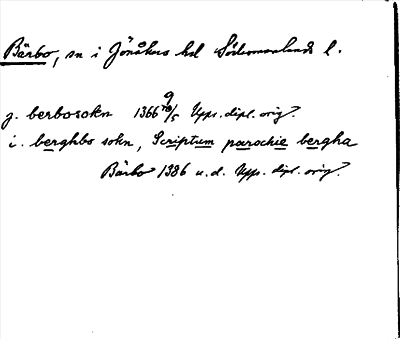 Bärbo, sn i Jönåkers hd Södermanlands l.
g. berbosokn 1366 9/5 Upps. dipl. orig.
i. berghbo sokn, Scriptum parochie bergha
Bärbo 1386 u.d. Upps. dipl. orig.